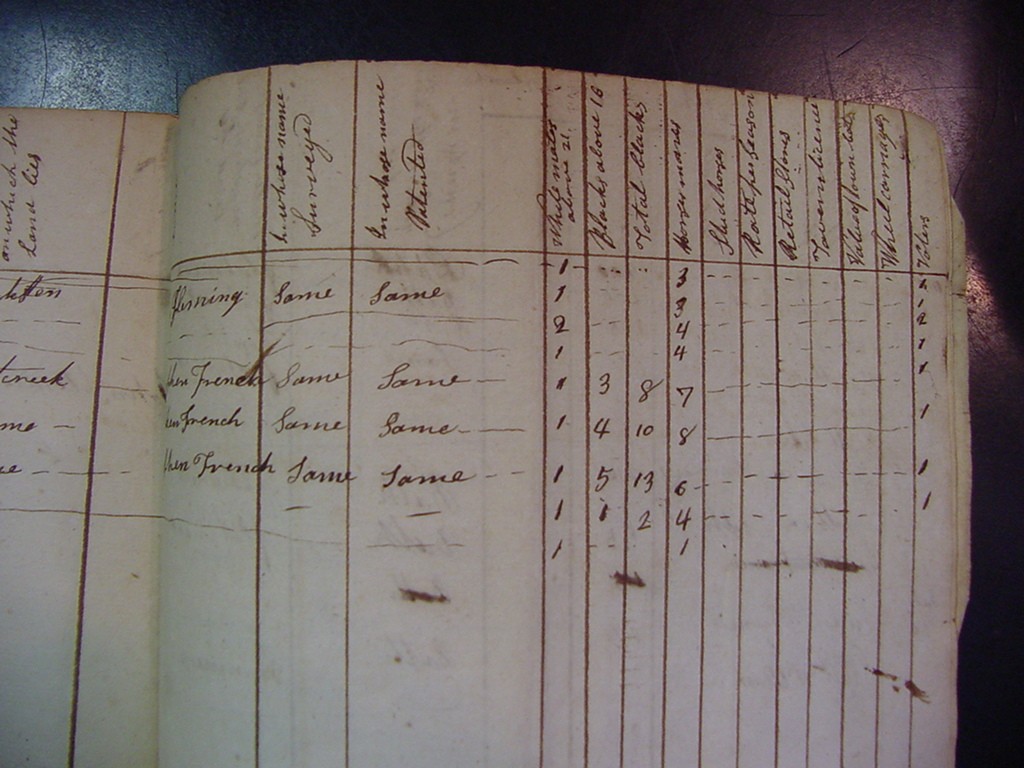 on which the
Land lies
In whose name
Surveyed
In whose name
Patented
White males
above 21.
Blacks above 16
Total blacks
horses mares
Stud horses
Rate per season
Retail Stores
Tavern licence
Value of town lots
Wheel carriages
Voters
1 3 1
fleming Same Same 1 3 1
2 4 2
1 4 1
creek French Same Same 1 3 8 7 1
French Same Same 1 4 10 8 1
French Same Same 1 5 13 6 1
1 1 2 4 1
1 1